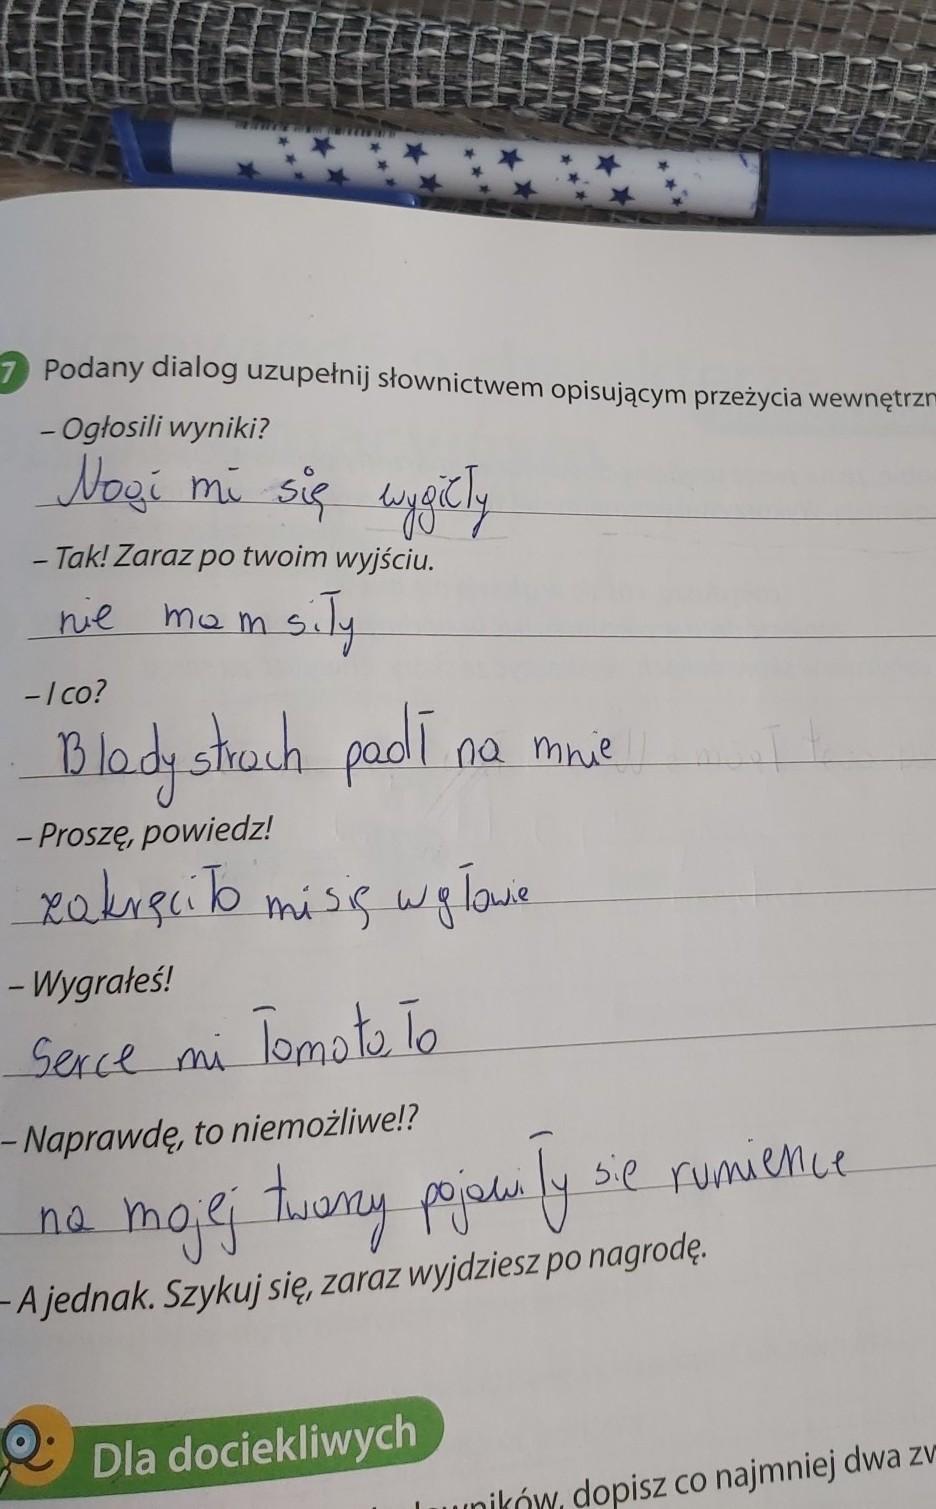 7 Podany dialog uzupełnij słownictwem opisującym przeżycia wewnętrzn
– Ogłosili wyniki?
Nogi mi się wygięły
– Tak! Zaraz po twoim wyjściu.
nie mam siły
– I co?
Blady strach padł na mnie
– Proszę, powiedz!
zakręciło mi się w głowie
– Wygrałeś!
Serce mi łomotało
– Naprawdę, to niemożliwe!?
na mojej twarzy pojawiły sie rumience
– A jednak. Szykuj się, zaraz wyjdziesz po nagrodę.
Dla dociekliwych
dopisz co najmniej dwa zw